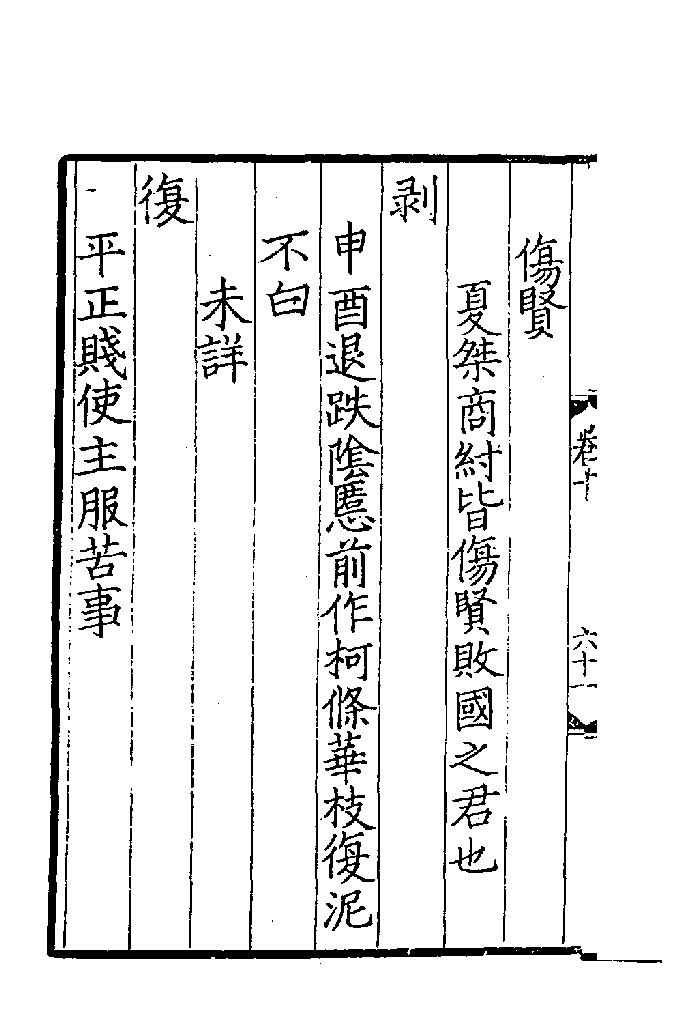 傷賢
夏桀商紂皆傷賢敗國之君也
剥
申酉退跌隂慝前作柯條華枝復泥
不白
未詳
復
平正賤使主服苦事
卷十
六十一